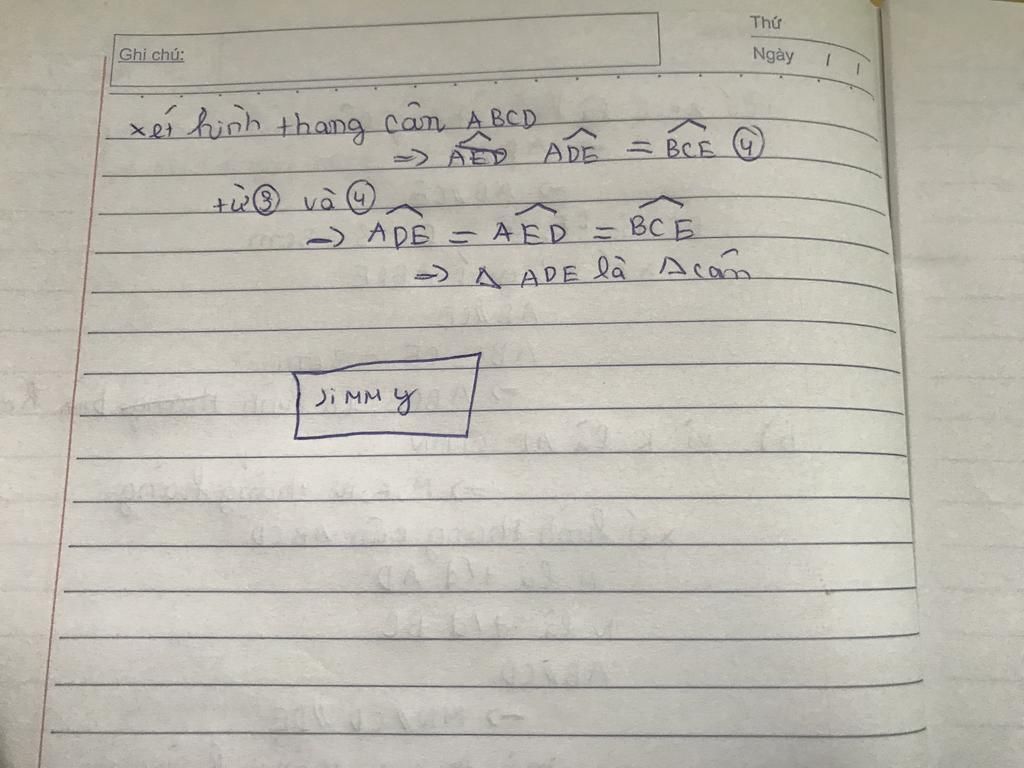 Ghi chú:
Thứ
Ngày / /
xét hình thang cân ABCD
=> AED ADE = BCE ④
từ ③ và ④
=> ADE = AED = BCE
=> Δ ADE là Δ cân
JIMMY